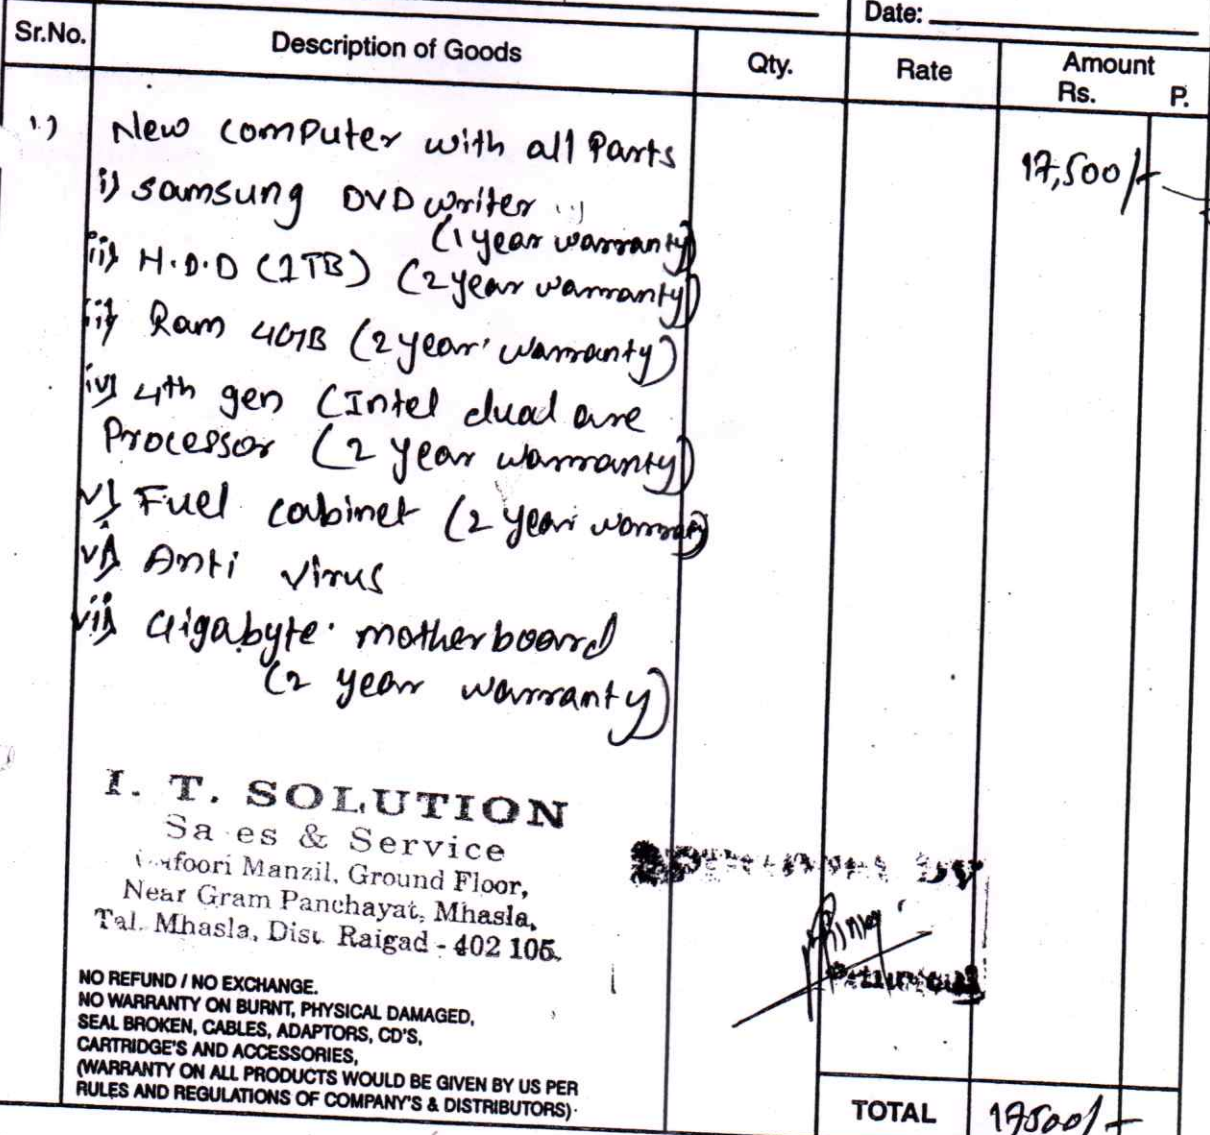 Date:
Sr.No. Description of Goods Qty. Rate Amount
Rs. P.
1.) New computer with all Parts 17,500/-
i) Samsung DVD writer
(1 year warranty)
ii) H.D.D (1TB) (2 year warranty)
iii) Ram 4GB (2 year warranty)
iv) 4th gen (Intel dual core
Processor (2 year warranty)
v) Fuel cabinet (2 year warranty)
vi) Anti virus
vii) Gigabyte motherboard
(2 year warranty)
I. T. SOLUTION
Sales & Service
Manzil, Ground Floor,
Near Gram Panchayat, Mhasla,
Tal. Mhasla, Dist. Raigad - 402 105.
by
NO REFUND / NO EXCHANGE.
NO WARRANTY ON BURNT, PHYSICAL DAMAGED,
SEAL BROKEN, CABLES, ADAPTORS, CD'S,
CARTRIDGE'S AND ACCESSORIES,
(WARRANTY ON ALL PRODUCTS WOULD BE GIVEN BY US PER
RULES AND REGULATIONS OF COMPANY'S & DISTRIBUTORS)
TOTAL 17500/-